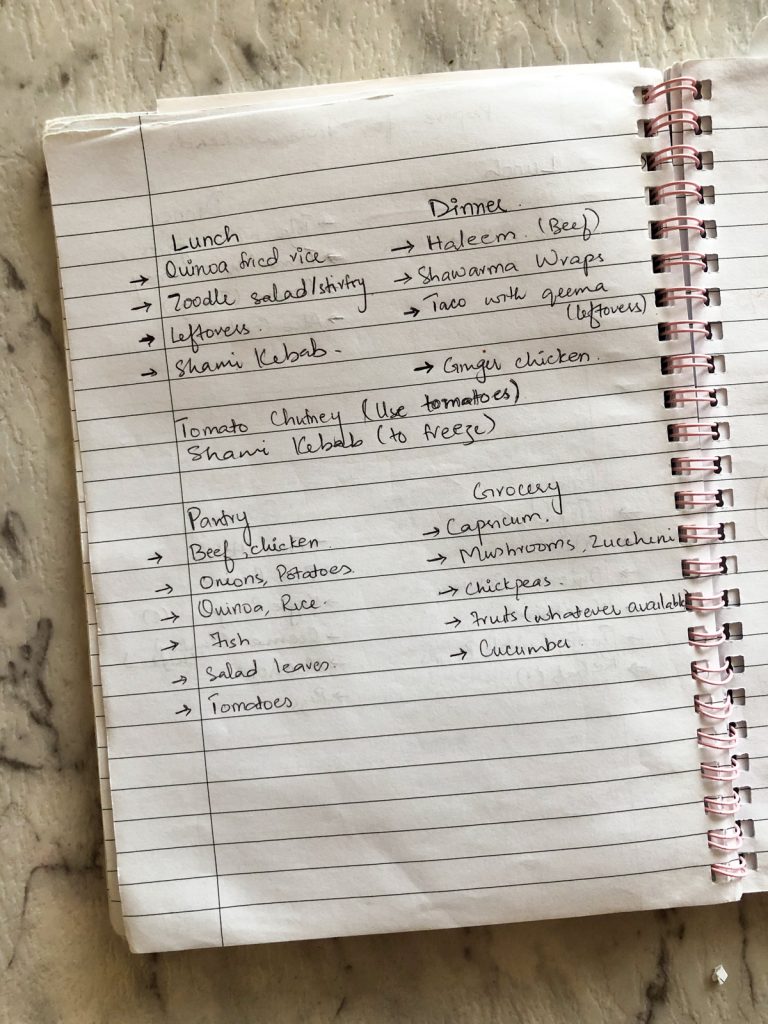 Lunch
Quinoa fried rice
Zoodle salad/stirfry
leftovers.
Shami Kebab.
Dinner.
Haleem. (Beef)
Shawarma Wraps
Taco with qeema
(leftovers)
Ginger chicken.
Tomato Chutney (Use tomatoes)
Shami Kebab (to freeze)
Pantry
Beef, chicken.
Onions, Potatoes.
Quinoa, Rice.
Fish
Salad leaves.
Tomatoes
Grocery
Capsicum.
Mushrooms, Zuccheni
Chickpeas.
Fruits (whatever available)
Cucumber.